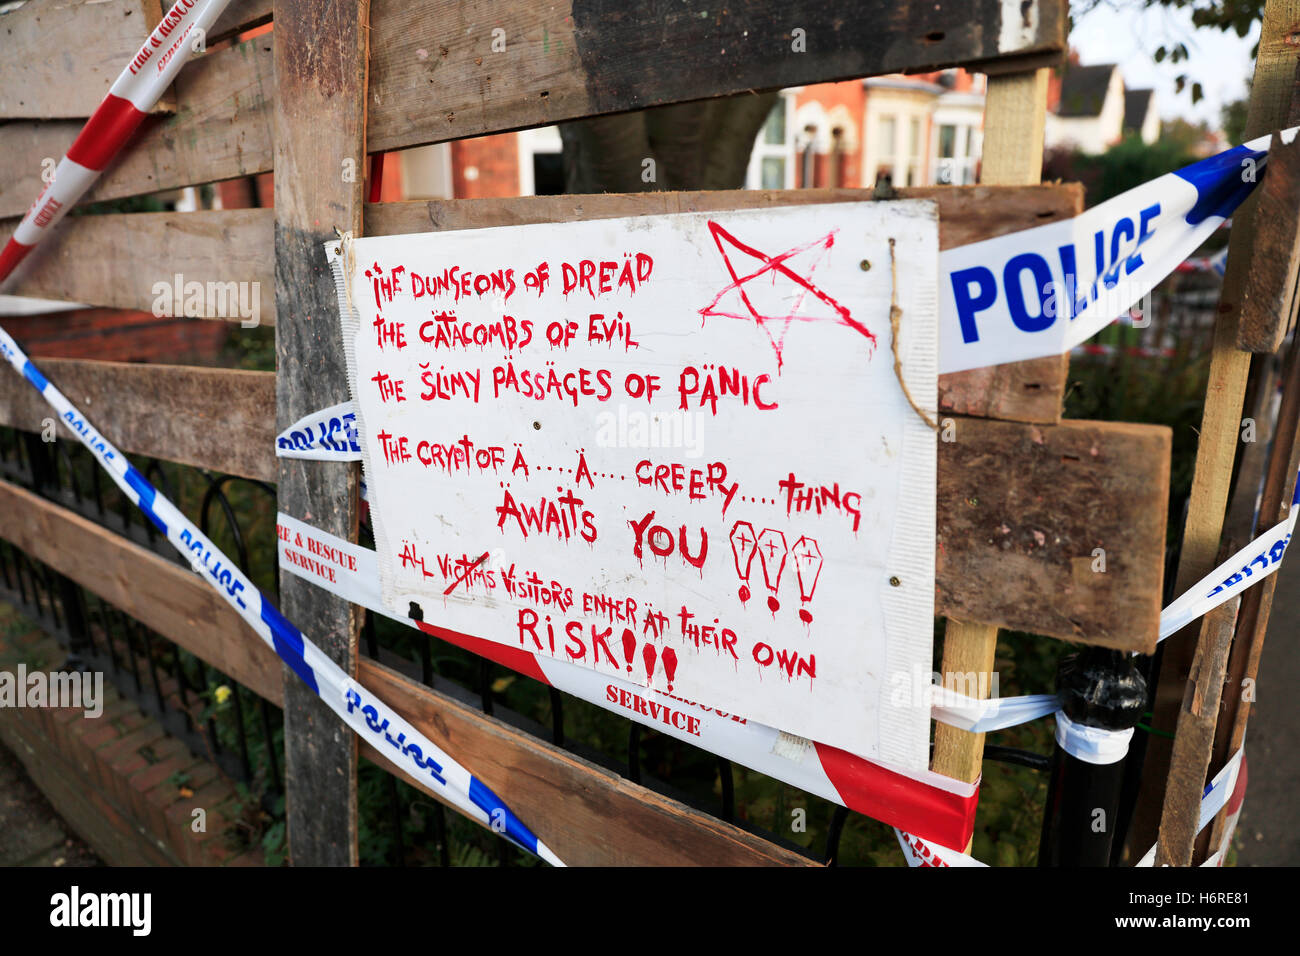 FIRE & RESCUE
SERVICE
SERVICE
THE DUNSEONS OF DREÄD
THE CÄTÄCOMBS OF EVIL
THE SLIMY PÄSSÄGES OF PÄNIC
THE CRYPT OF Ä .... Ä.... CREEPY.... THING
ÄWAITS YOU !!!
ÄLL VICTIMS VISITORS ENTER ÄT THEIR OWN
RISK!!!
POLICE
POLICE
& RESCUE
SERVICE
SERVICE
POLICE
POLICE
POLICE
POLICE
alamy
alamy stock photo
H6RE81
www.alamy.com